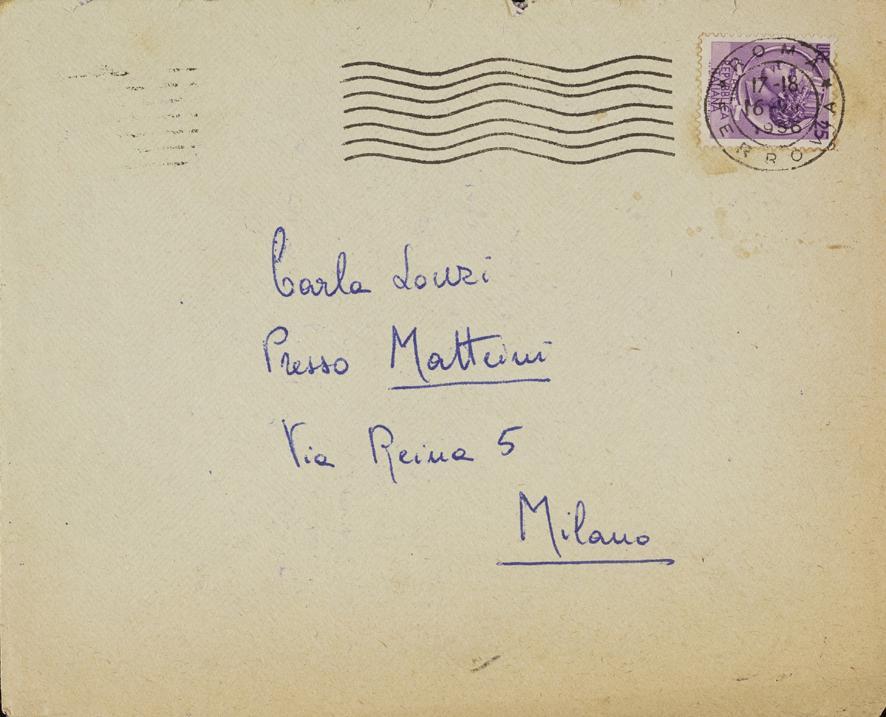 ROMA FERROVIA
17-18
16
1956
REPUBBLICA
ITALIANA
Carla Lonzi
Presso Matteini
Via Reina 5
Milano